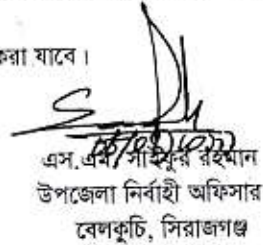 করা যাবে।
এস.এম. সাইফুর রহমান
উপজেলা নির্বাহী অফিসার
বেলকুচি, সিরাজগঞ্জ